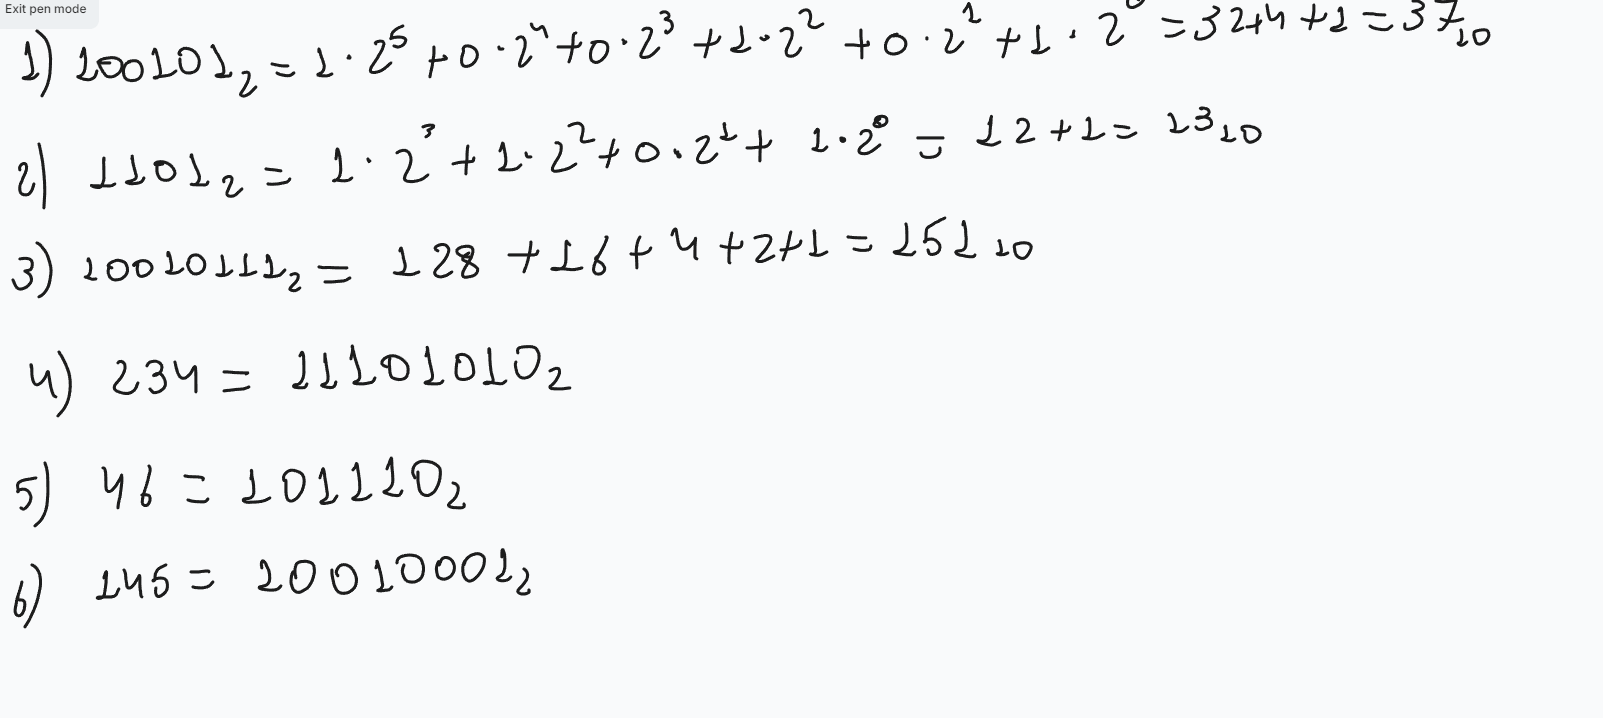 Exit pen mode
1) 100101₂ = 1 · 2⁵ + 0 · 2⁴ + 0 · 2³ + 1 · 2² + 0 · 2¹ + 1 · 2⁰ = 32+4+1 = 37₁₀
2) 1101₂ = 1 · 2³ + 1 · 2² + 0 · 2¹ + 1 · 2⁰ = 12 + 1 = 13₁₀
3) 10010111₂ = 128 + 16 + 4 + 2 + 1 = 151₁₀
4) 234 = 11101010₂
5) 46 = 101110₂
6) 145 = 10010001₂